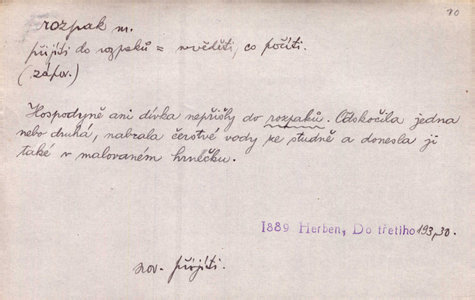 70
rozpak m.
přijíti do rozpaků = nevěděti, co počíti.
(zápor.)
Hospodyně ani dívka nepřišly do rozpaků. Odskočila jedna
nebo druhá, nabrala čerstvé vody ze studně a donesla ji
také v malovaném hrnéčku.
1889 Herben, Do třetího 193,30.
srov. přijíti.